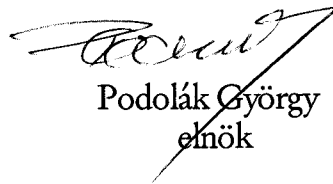 Podolák György
elnök